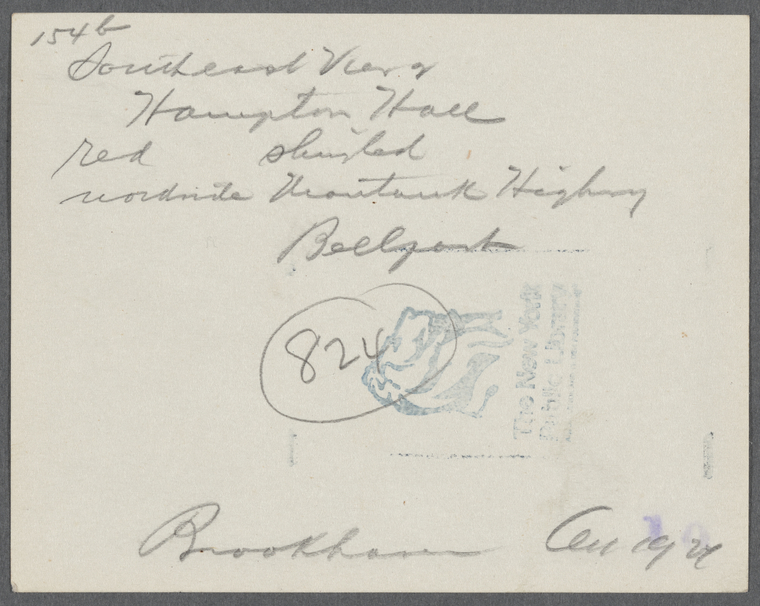 154b
Southeast View
Hampton Hall
red shingled
northside Montauk Highway
Bellport
824
The New York
Public Library
Brookhaven